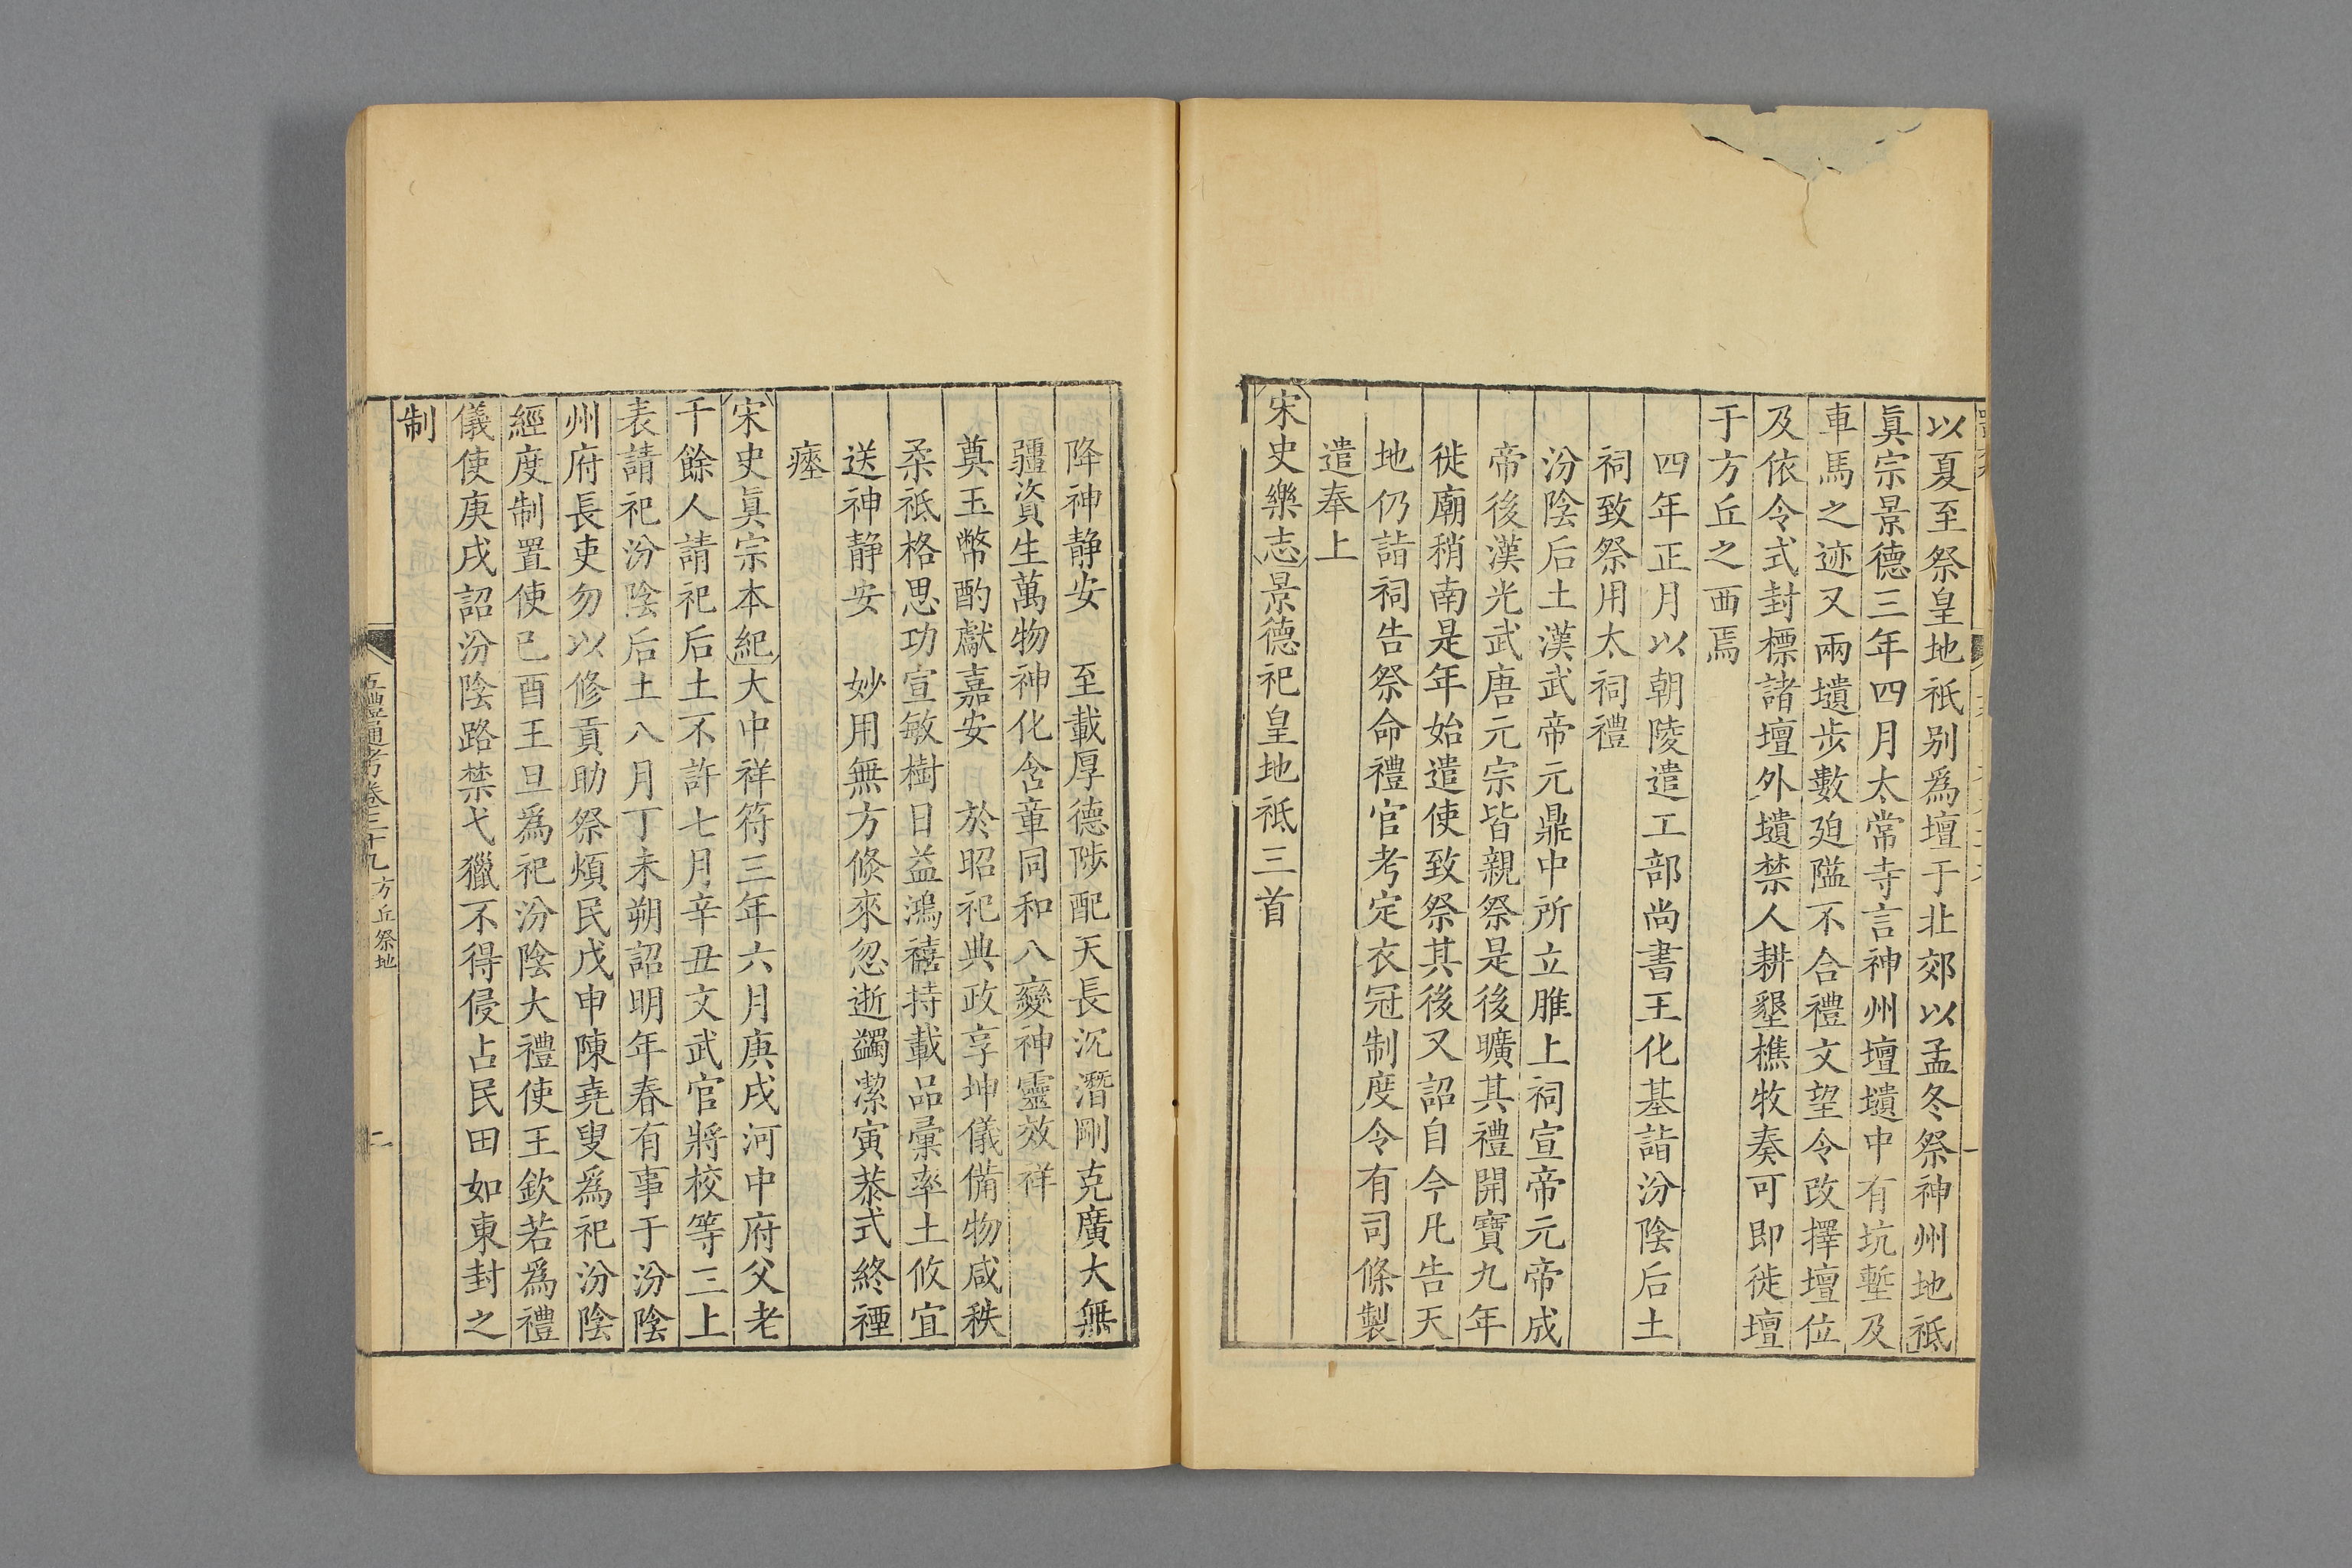 以夏至祭皇地祇别爲壇于北郊以孟冬祭神州地祇
眞宗景德三年四月太常寺言神州壇壝中有坑塹及
車馬之迹又兩壝步數廹隘不合禮文望令改擇壇位
及依令式封標諸壇外壝禁人耕墾樵牧奏可即徙壇
于方丘之西焉
四年正月以朝陵遣工部尚書王化基詣汾陰后土
祠致祭用太祠禮
汾陰后土漢武帝元鼎中所立脽上祠宣帝元帝成
帝後漢光武唐元宗皆親祭是後曠其禮開寶九年
徙廟稍南是年始遣使致祭其後又詔自今凡告天
地仍詣祠告祭命禮官考定衣冠制度令有司條製
遣奉上
宋史樂志景德祀皇地祗三首
降神静安 至載厚德陟配天長沉潛剛克廣大無
疆資生萬物神化含章同和八變神靈效祥
奠玉幣酌獻嘉安 於昭祀典政享坤儀備物咸秩
柔祇格思功宣敏樹日益鴻禧持載品彙率土攸宜
送神静安 妙用無方倏來忽逝蠲潔寅恭式終禋
瘞
宋史眞宗本紀大中祥符三年六月庚戌河中府父老
千餘人請祀后土不許七月辛丑文武官將校等三上
表請祀汾陰后土八月丁未朔詔明年春有事于汾陰
州府長吏勿以修貢助祭煩民戊申陳堯叟爲祀汾陰
經度制置使已酉王旦爲祀汾陰大禮使王欽若爲禮
儀使庚戌詔汾陰路禁弋獵不得侵占民田如東封之
制
五禮通考卷三十九 方丘祭地
二